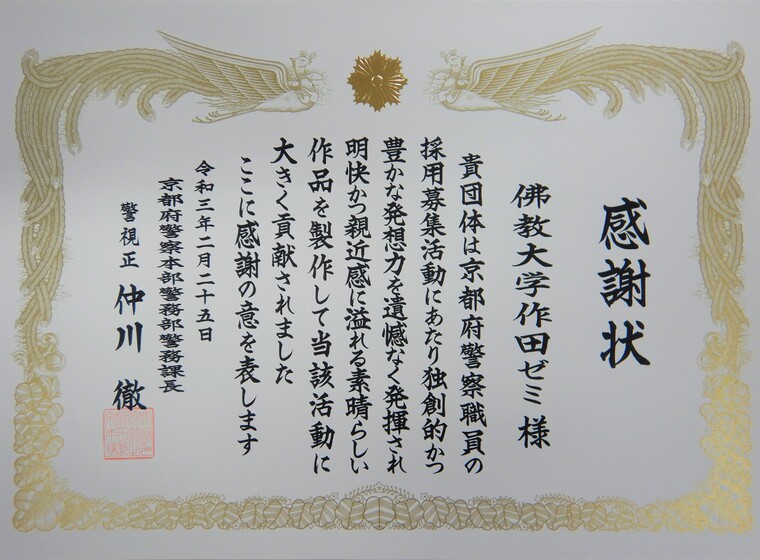 感謝状
佛教大学作田ゼミ 様
貴団体は京都府警察職員の
採用募集活動にあたり独創的かつ
豊かな発想力を遺憾なく発揮され
明快かつ親近感に溢れる素晴らしい
作品を製作して当該活動に
大きく貢献されました
ここに感謝の意を表します
令和三年二月二十五日
京都府警察本部警務部警務課長
警視正 仲川 徹